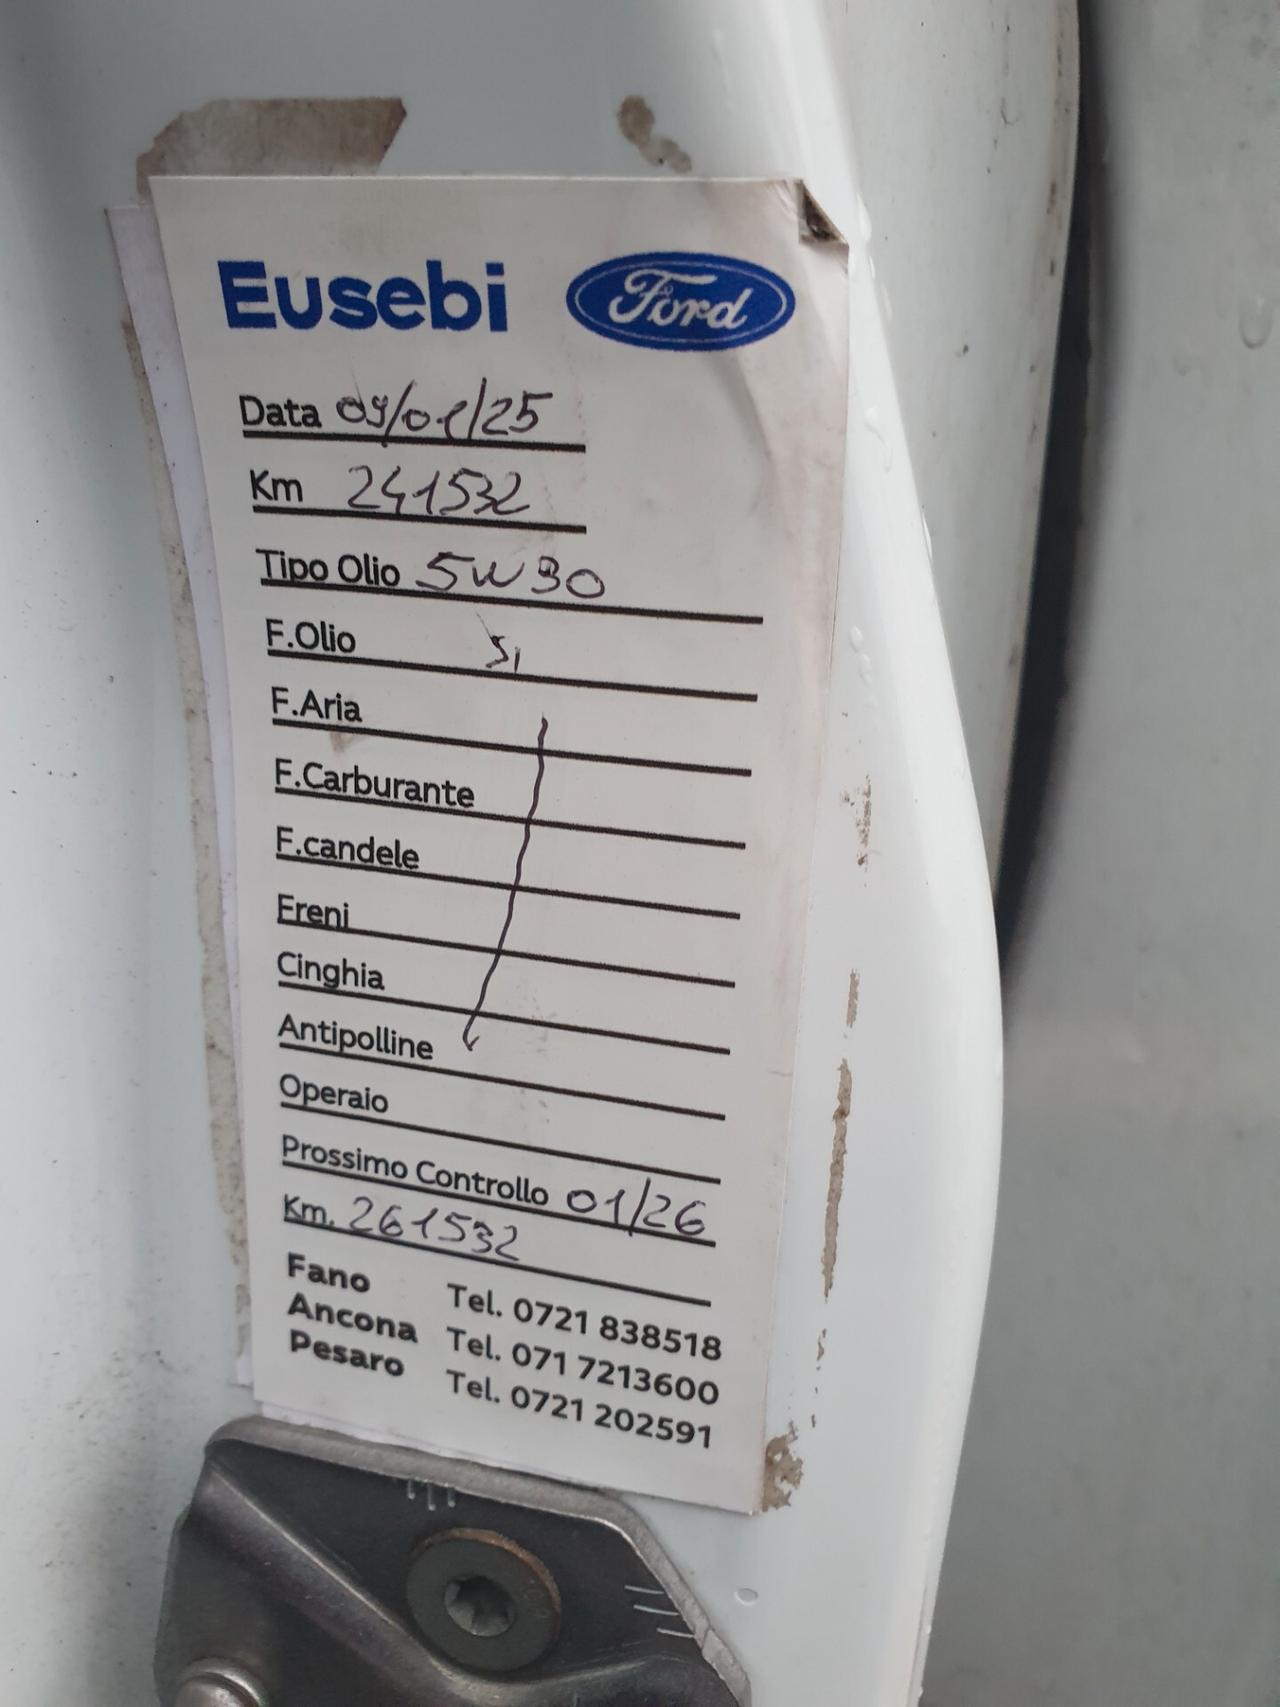 Eusebi Ford
Data 09/01/25
Km 241532
Tipo Olio 5W30
F.Olio Si
F.Aria
F.Carburante
F.candele
Freni
Cinghia
Antipolline
Operaio
Prossimo Controllo 01/26
Km. 261532
Fano Tel. 0721 838518
Ancona Tel. 071 7213600
Pesaro Tel. 0721 202591